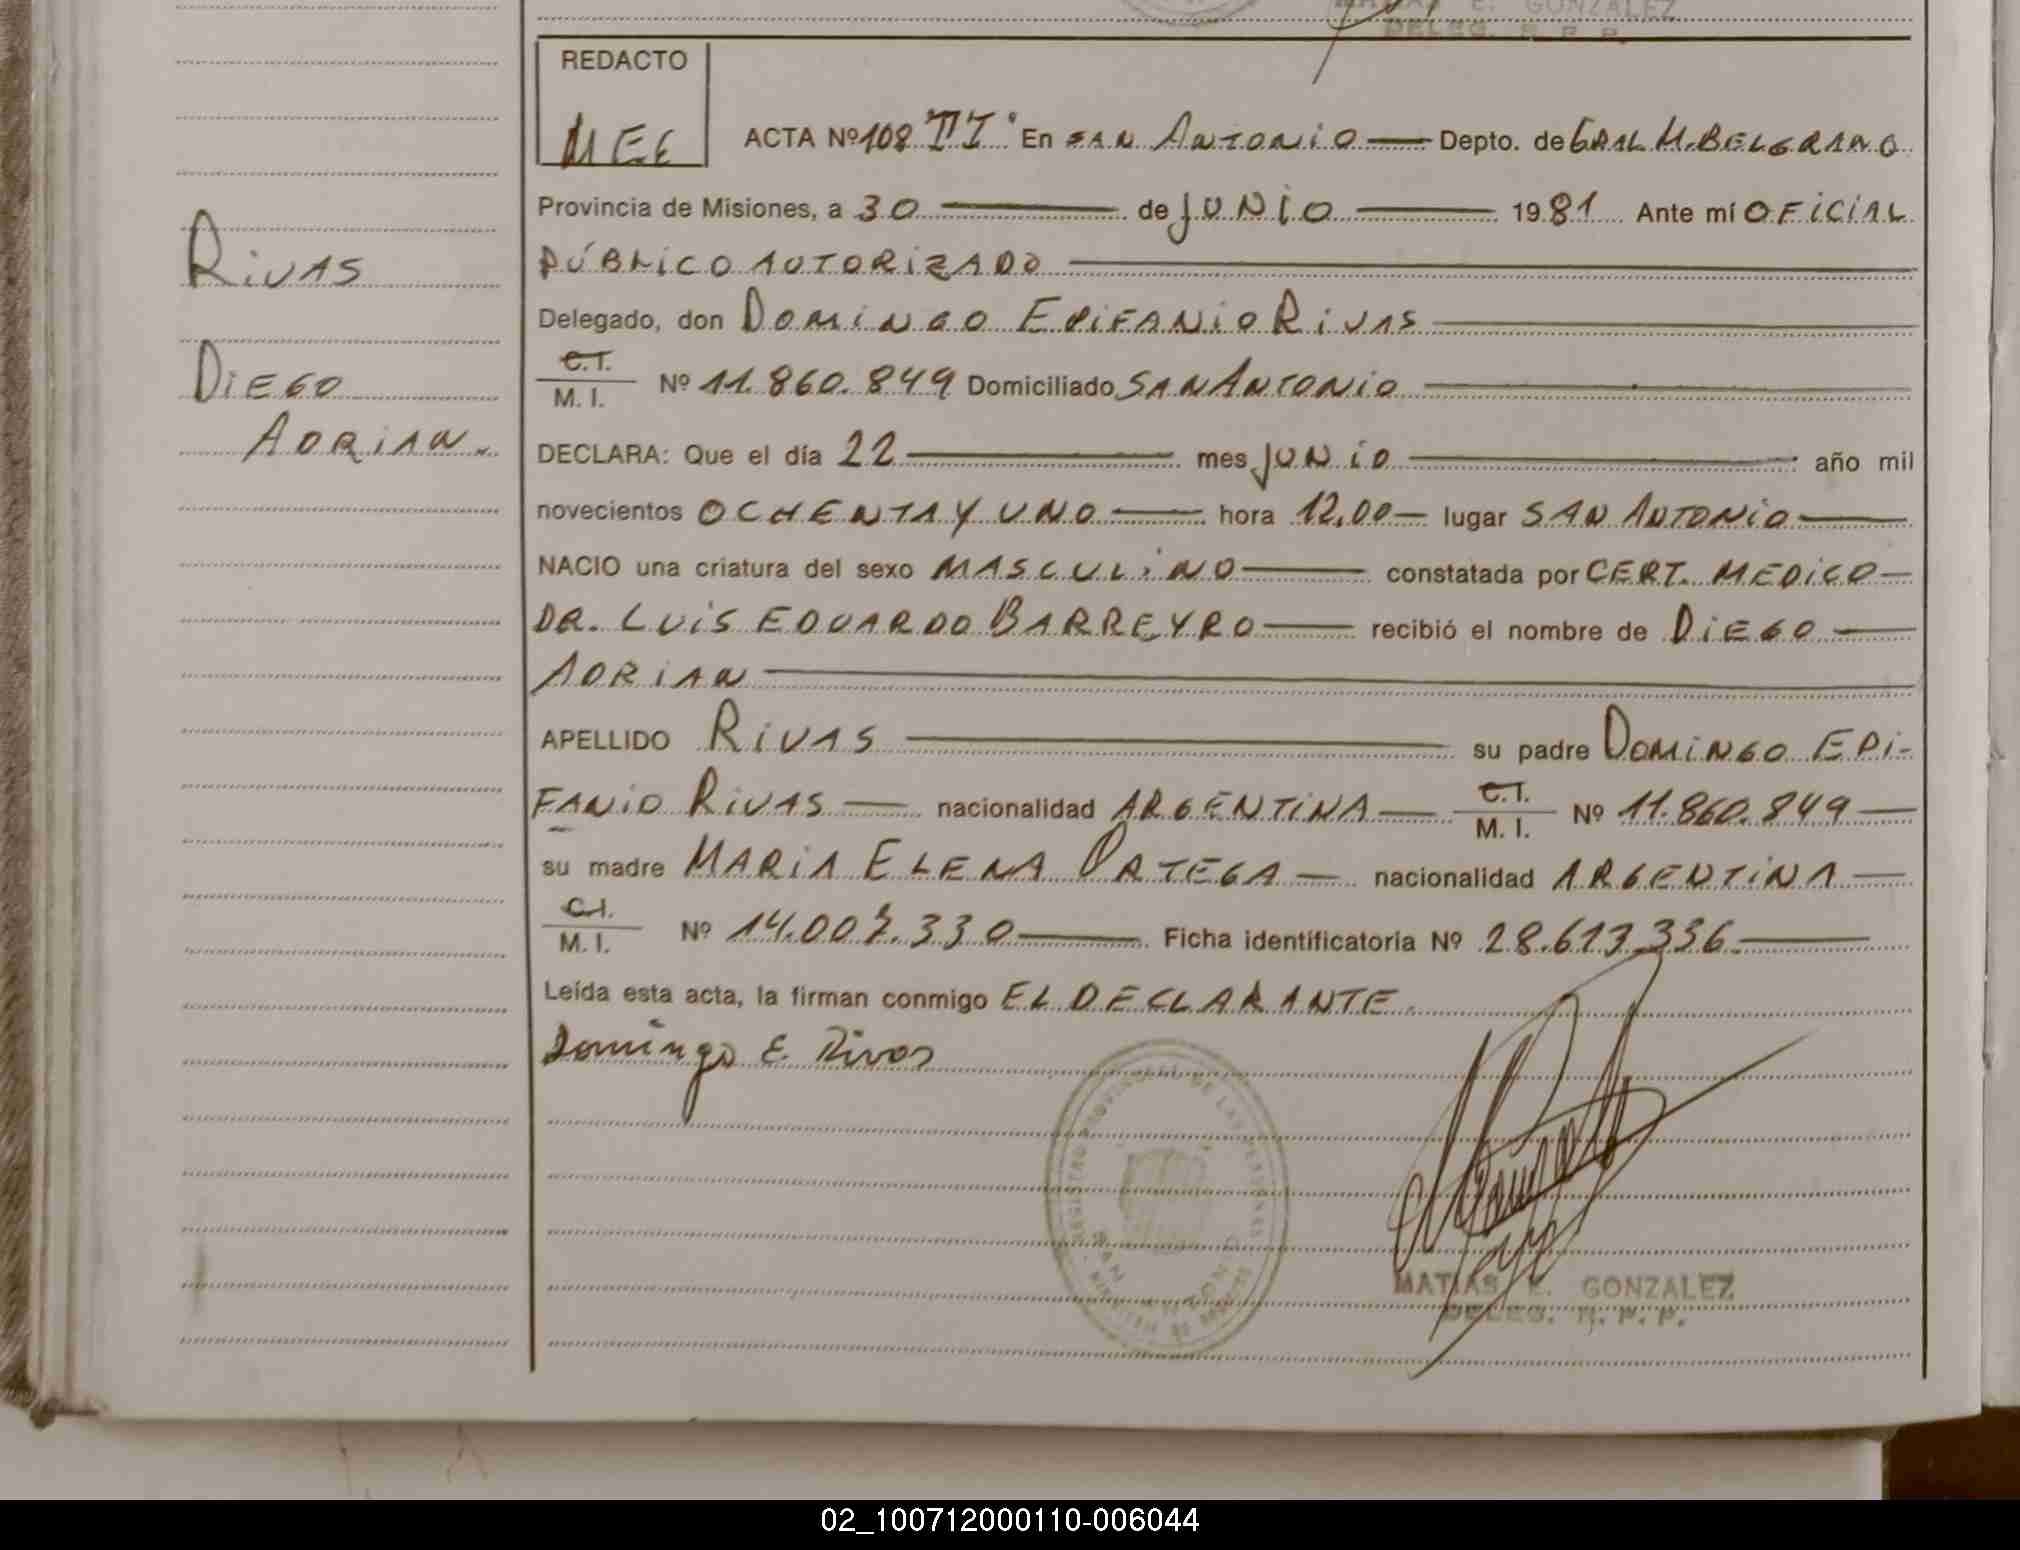 MATIAS E. GONZALEZ
DELEG. R. P. P.
REDACTO
MEG
ACTA Nº 108 TºI° En SAN ANTONIO Depto. de GRAL M. BELGRANO
Provincia de Misiones, a 30 de JUNIO 1981 Ante mí OFICIAL
PÚBLICO AUTORIZADO
Delegado, don DOMINGO EPIFANIO RIVAS
C.I.
M. I. Nº 11.860.849 Domiciliado SAN ANTONIO
DECLARA: Que el día 22 mes JUNIO año mil
novecientos OCHENTA Y UNO hora 12,00 lugar SAN ANTONIO
NACIO una criatura del sexo MASCULINO constatada por CERT. MEDICO
DR. LUIS EDUARDO BARREYRO recibió el nombre de DIEGO
ADRIAN
APELLIDO RIVAS su padre DOMINGO EPI-
FANIO RIVAS nacionalidad ARGENTINA C.I. M. I. Nº 11.860.849
su madre MARIA ELENA ORTEGA nacionalidad ARGENTINA
C.I.
M. I. Nº 14.007.330 Ficha identificatoria Nº 28.613.336
Leída esta acta, la firman conmigo EL DECLARANTE.
Domingo E. Rivas
REGISTRO PROVINCIAL DE LAS PERSONAS
SAN ANTONIO
MATIAS E. GONZALEZ
DELEG. R. P. P.
RIVAS
DIEGO
ADRIAN.
02_100712000110-006044